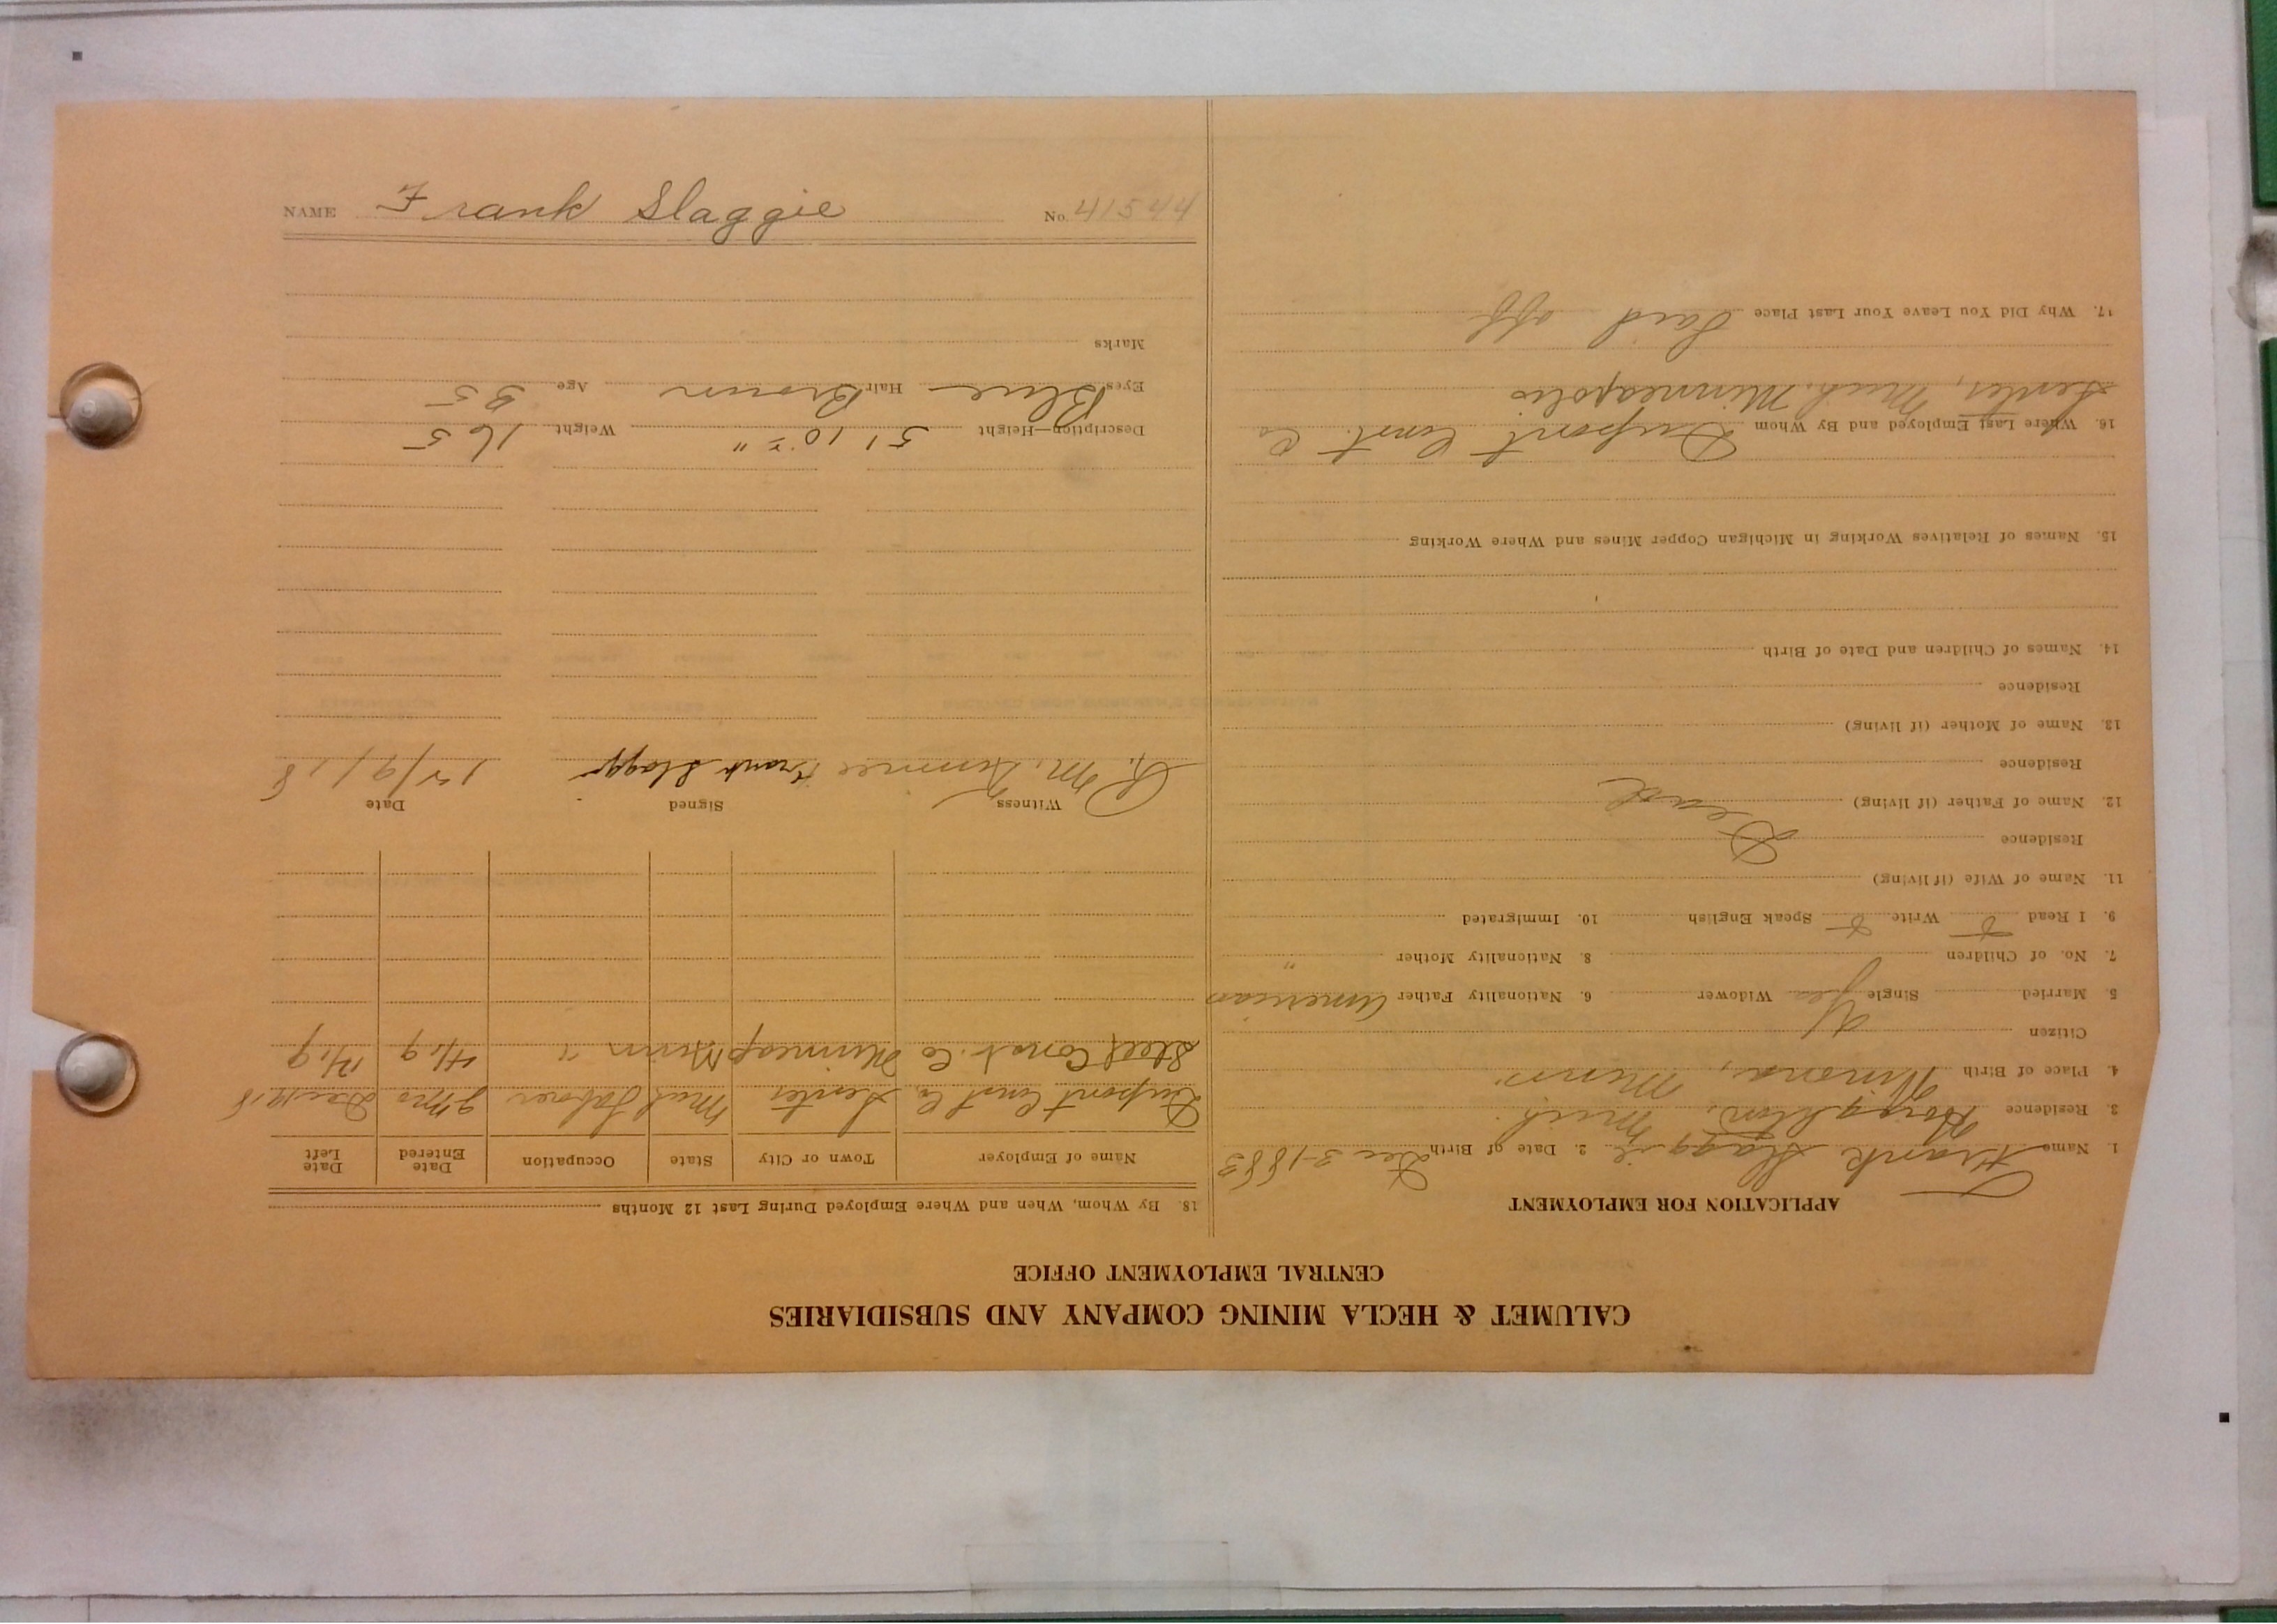 CALUMET & HECLA MINING COMPANY AND SUBSIDIARIES
CENTRAL EMPLOYMENT OFFICE
APPLICATION FOR EMPLOYMENT
1. Name Frank Slaggie 2. Date of Birth Dec 3-1883
3. Residence Houghton, Mich.
4. Place of Birth Winona, Minn.
Citizen
5. Married Single Yes Widower 6. Nationality Father American
7. No. of Children 8. Nationality Mother "
9. I Read Write Speak English 10. Immigrated
11. Name of Wife (if living)
Residence
12. Name of Father (if living) Dead
Residence
13. Name of Mother (if living)
Residence
14. Names of Children and Date of Birth
15. Names of Relatives Working in Michigan Copper Mines and Where Working
16. Where Last Employed and By Whom Dupont Const. Co
Senter, Mich. Minneapolis
17. Why Did You Leave Your Last Place Laid off
18. By Whom, When and Where Employed During Last 12 Months
Name of Employer Town or City State Occupation Date Entered Date Left
Dupont Const Co, Senter Mich Laborer 9 mo Dec 1918
Steel Const. Co Minneap Minn "
Witness Signed Date
Frank Slaggi 12/9/18
Description—Height 5' 10 Weight 165
Eyes Blue Hair Brown Age 35
Marks
NAME Frank Slaggie No. 41544